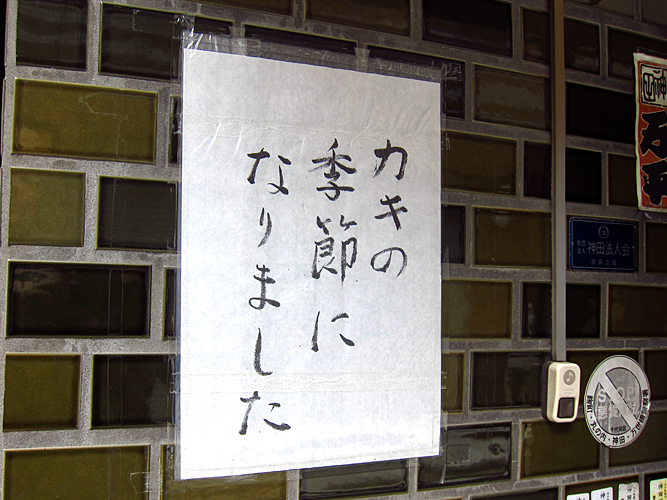 カキの
季節に
なりました
神田法人会